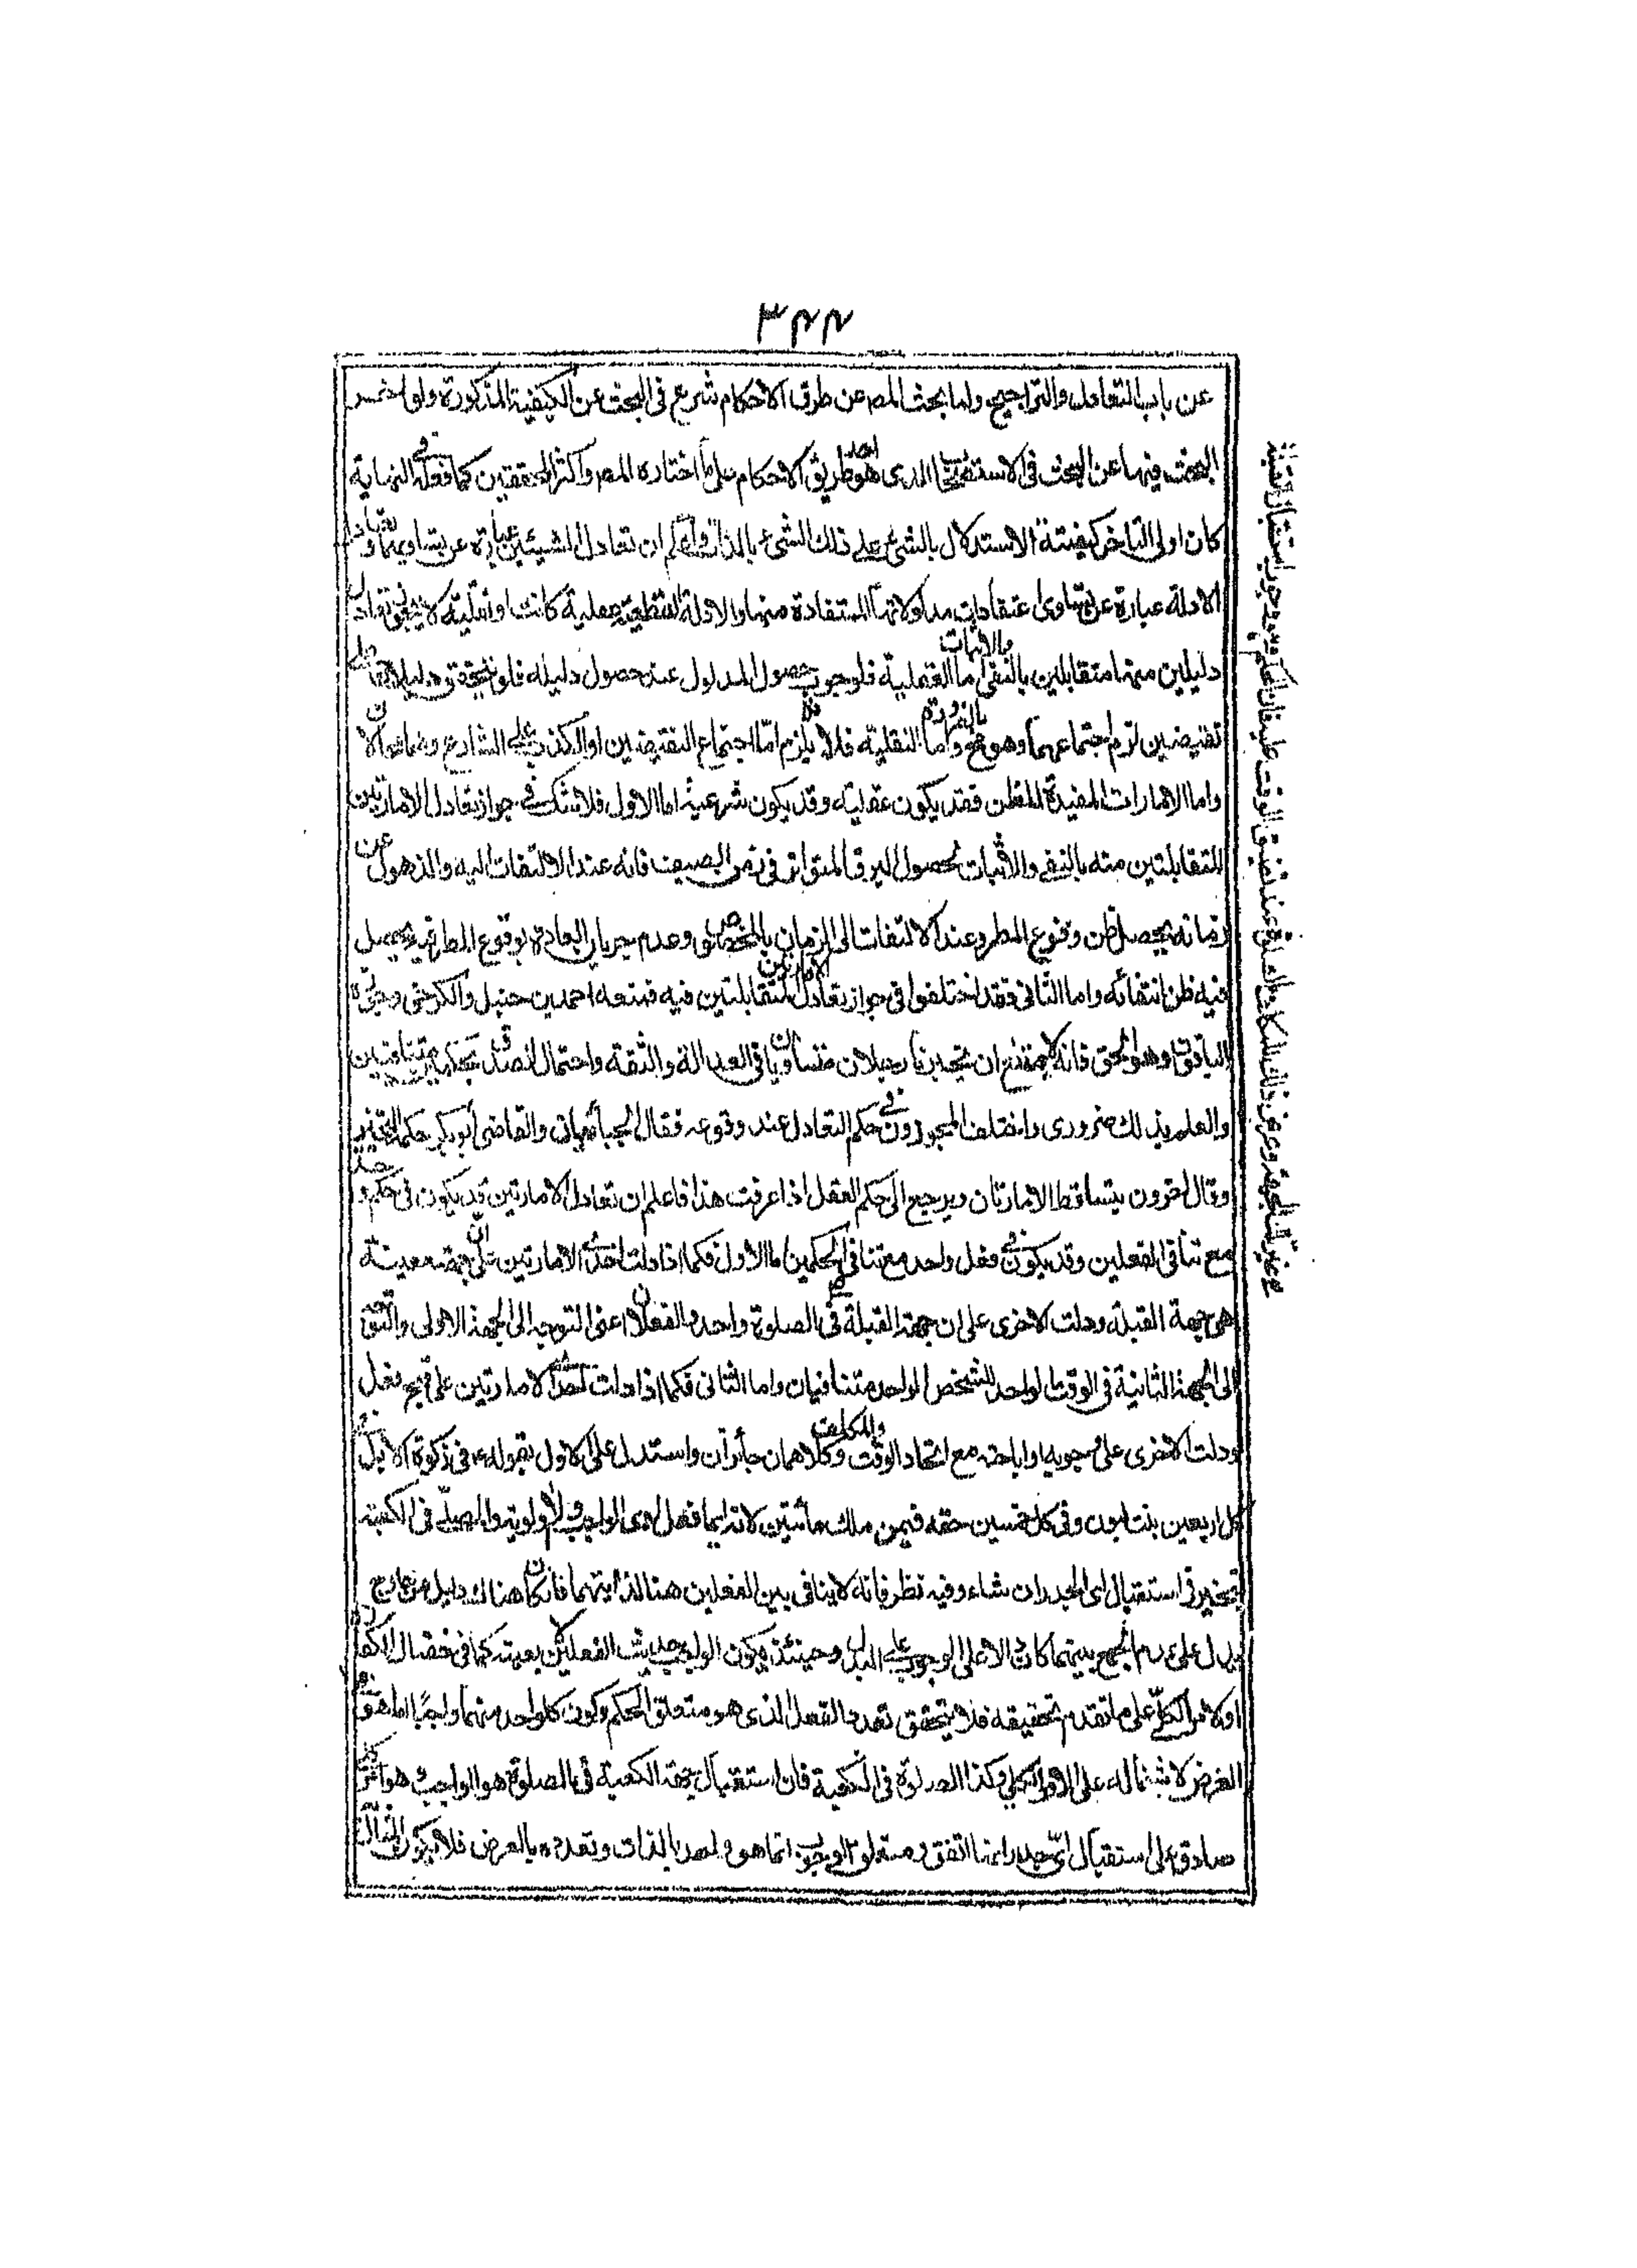 ٣٤٤
عن باب التعادل والتراجيح ولما بحث المصر عن طرق الاحكام شرع في البحث عن الكيفية المذكورة ولو اخر
البحث فيها عن البحث في الاستصحاب الذي هو احد طريق الاحكام على ما اختاره المصر واكثر المحققين كما فعله في النهاية
كان اولى لتاخر كيفية الاستدلال بالشئ على ذلك الشئ بالذات واعلم ان تعادل الشيئين عبارة عن تساويهما وتعادل
الادلة عبارة عن تساوي اعتقادات مدلولاتها المستفادة منها والادلة القطعية عقلية كانت او نقلية لا يتحقق تعادل
دليلين منها متقابلين بالنفي والاثبات اما العقلية فلوجوب حصول المدلول عند حصول دليله فلو تحقق دليلا
نقيضين لزم اجتماعهما وهو مح بالضرورة واما النقلية فلانه يلزم اما اجتماع النقيضين او الكذب على الشارع وهما محالان
واما الامارات المفيدة للظن فقد يكون عقلية وقد يكون شرعية اما الاول فلا شك في جواز تعادل الامارتين
المتقابلتين منه بالنفي والاثبات كحصول البرق المتواتر في زمن الصيف فانه عند الالتفات اليه والذهول عن
زمانه يحصل ظن وقوع المطر وعند الالتفات الى الزمان المخصوص وعدم جريان العادة بوقوع المطر فيه يحصل
فيه ظن انتفائه واما الثاني فقد اختلفوا في جواز تعادل الامارتين المتقابلتين فيه فمنعه احمد بن حنبل والكرخي وجوزه
الباقون وهو الحق فانه لا يمتنع ان يخبرنا رجلان متساويان في العدالة والثقة واحتمال الصدق بحكمين متنافيين
والعلم بذلك ضروري واختلف المجوزون في حكم التعادل عند وقوعه فقال الجبائيان والقاضي ابو بكر حكمه التخيير
وقال اخرون يتساقط الامارتان ويرجع الى حكم العقل اذا عرفت هذا فاعلم ان تعادل الامارتين قد يكون في حكم واحد
مع تنافي الفعلين وقد يكون في فعل واحد مع تنافي الحكمين اما الاول فكما اذا دلت احدى الامارتين على ان جهة معينة
هي جهة القبلة ودلت الاخرى على ان جهة القبلة غيرها في الصلوة واحد والفعلان اعني التوجه الى الجهة الاولى والتوجه
الى الجهة الثانية في الوقت الواحد للشخص الواحد متنافيان واما الثاني فكما اذا دلت احدى الامارتين على قبح فعل
ودلت الاخرى على وجوبه او اباحته مع اتحاد الوقت والمكلف وكلاهما جائزان واستدل على الاول بقوله ع في زكوة الابل في
كل اربعين بنت لبون وفي كل خمسين حقه فيمن ملك مأتين لانه ايما فعل ادى الواجب ولا اولوية والمصلي في الكعبة
يتخير في استقبال اي الجدران شاء وفيه نظر فانه لا ينافي بين الفعلين هنا لذاتيهما فان كان هناك دليل من خارج
يدل على عدم الجمع بينهما كان دالا على الوجوب على البدل وحينئذ يكون الواجب احد الفعلين لا بعينه كما في خصال الكفارة
او الامر الكلي على ما تقدم تحقيقه فلا يتحقق تعدد الفعل الذي هو متعلق الحكم وكون كل واحد منهما واجبا انما هو
الغرض لاشتماله على الامر الكلي وكذا الصلوة في الكعبة فان استقبال جهة الكعبة في الصلوة هو الواجب وهو امر
صادق على استقبال اي جدار انما اتفق فمتعلق الوجوب انما هو واحد بالذات وتعدده بالعرض فلا يكون المثال